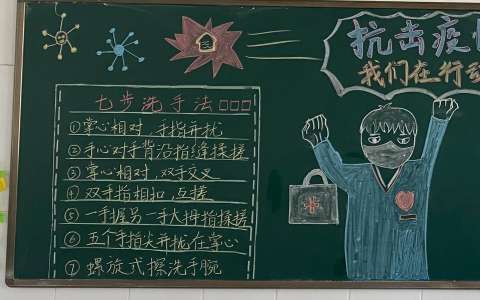 抗击疫情
我们在行动
七步洗手法□□□
①掌心相对,手指并拢
②手心对手背沿指缝揉搓
③掌心相对,双手交叉
④双手指相扣,互搓
⑤一手握另一手大拇指揉搓
⑥五个手指尖并拢在掌心
⑦螺旋式擦洗手腕